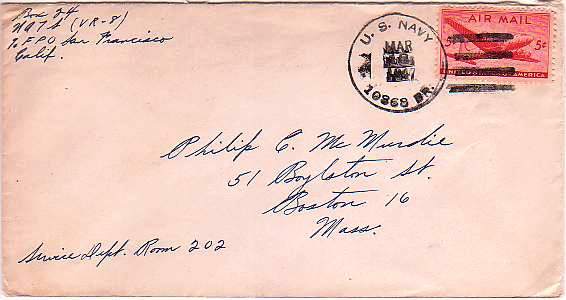 Box 24
NATS (VR-8)
% FPO San Francisco
Calif.
U. S. NAVY
MAR
1947
10868 BR.
AIR MAIL
5¢ 5¢
UNITED STATES OF AMERICA
Philip E. Mc Murdie
51 Boylston St.
Boston 16
Mass.
Service Dept. Room 202